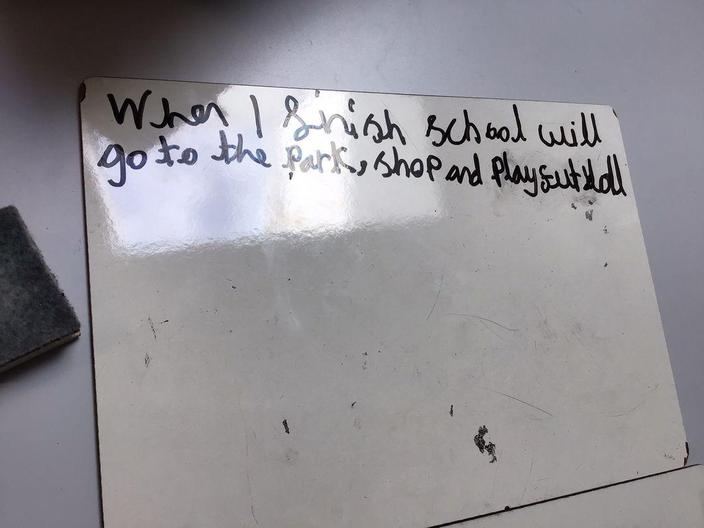 When I finish school will
go to the Park, shop and Play futball